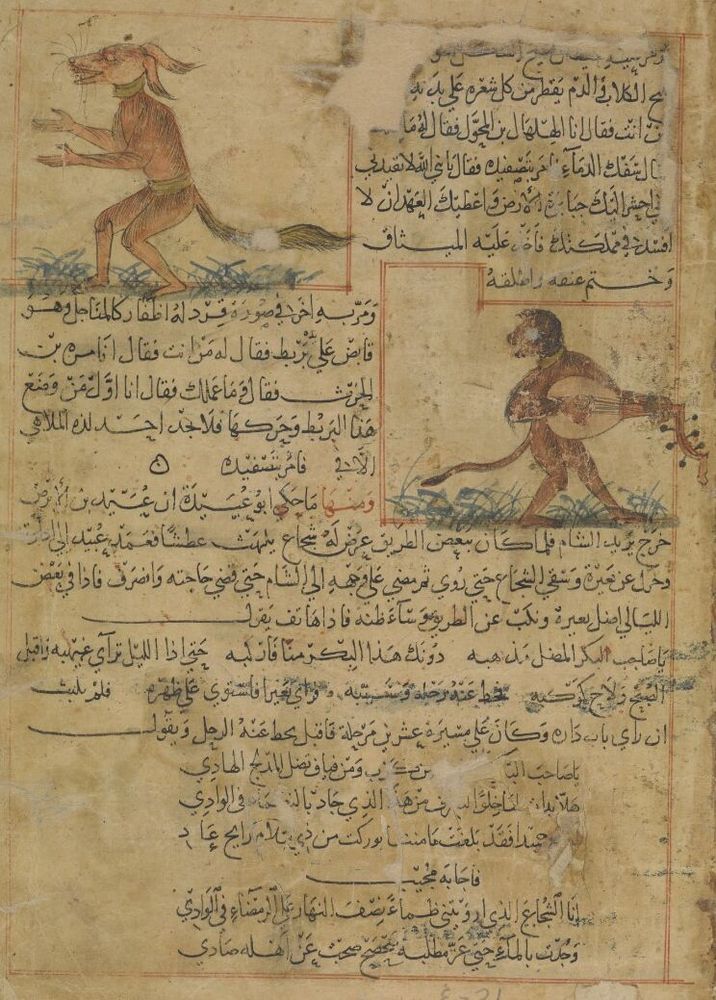 الكلاب والدم يقطر من كل شعره على بدنه
انت فقال انا الهلهال بن المحول فقال له ما
سفك الدماء بتصفيده فقال يا نبي الله لا تقيدني
احشر اليك جبابرة الأرض واعطيك العهد ان لا
افسد في مملكتك فأخذ عليه الميثاق
وختم عنقه واطلقه
ومر به اخر في صورة قرد له اظفار كالمناجل وهو
قابض على بربط فقال له من انت فقال انا مره بن
الحرث فقال وما عملك فقال انا اول من وضع
هذا البربط وحركها فلا يجد احد لذه الملاهي
الا بي فامر بتصفيده
ومنها ما حكي ابو عبيدة ان عبيد بن الابرص
خرج يريد الشام فلما كان ببعض الطريق عرض له شجاع يلهث عطشا فعمد عبيد الى اداوة
ونزل عن بعيره وسقي الشجاع حتى روي ثم مضي على وجهه الي الشام حتى قضي حاجته وانصرف فاذا في بعض
الليالي اضل بعيره ونكب عن الطريق وساء ظنه فاذا هاتف يقول
يا صاحب البكر المضل مذهبه دونك هذا البكر منا فاركبه حتى اذا الليل تراي غيهبه واقبل
الصبح ولاح كوكبه فحط عنه رحله وسيبه وراي بعيرا فاستوي على ظهره فلم يلبث
ان راي باب داره وكان على مسيرة عشرين مرحلة فاقبل يحط عنه الرحل ويقول
يا صاحب من ومن فياف تضل المدلج الهادي
هلا الذي جاد في الوادي
فقد بلغت بوركت من ذي سلام رايح غاد
فاجابه مجيب
انا الشجاع الذي ارويتني ظمأ نصف النهار على الرمضاء في الوادي
وجدت بالماء حتى عز مطلبه صحبت عن اهله صادي